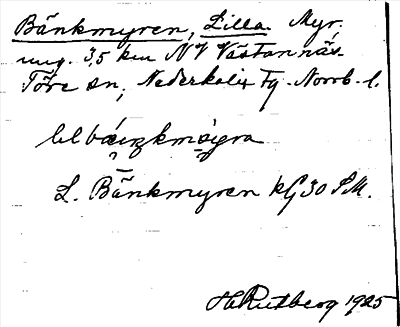 Bänkmyren, Lilla. Myr,
ung. 3,5 km NV Västannäs
Töre sn, Nederkalix Fg. Norrb. l.
L. Bänkmyren kG 30 S.M.
H Rutberg 1925